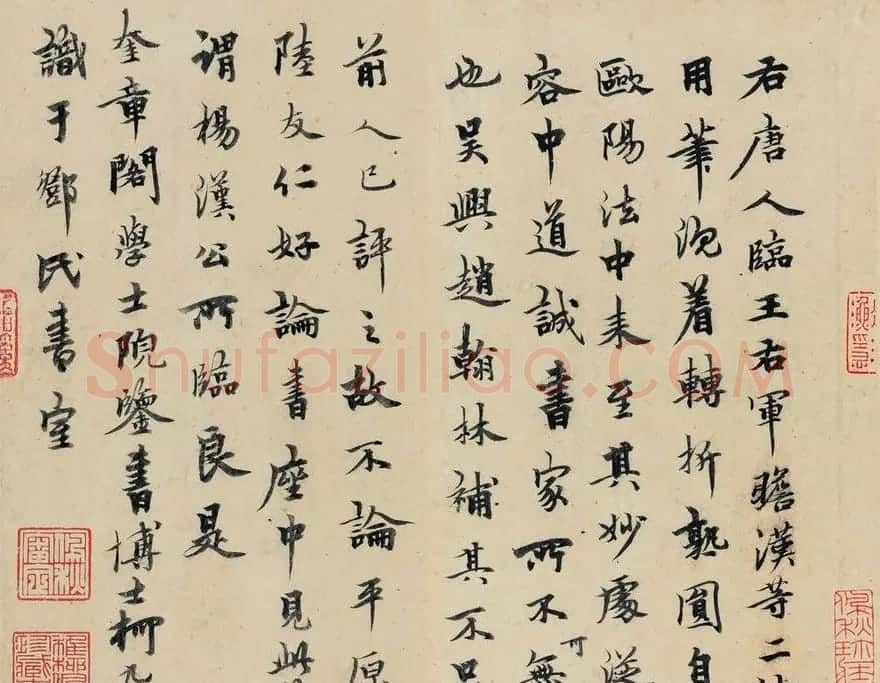 右唐人臨王右軍瞻漢等二
用筆沉着轉折熟圓自
歐陽法中来至其妙處従
容中道誠書家所不可無
也吴興趙翰林補其不足
前人已評之故不論平原
陸友仁好論書座中見此
謂楊漢公所臨良是
奎章閣學士院鑒書博士柯九
識于鄧氏書室
Shufaziliao.COM